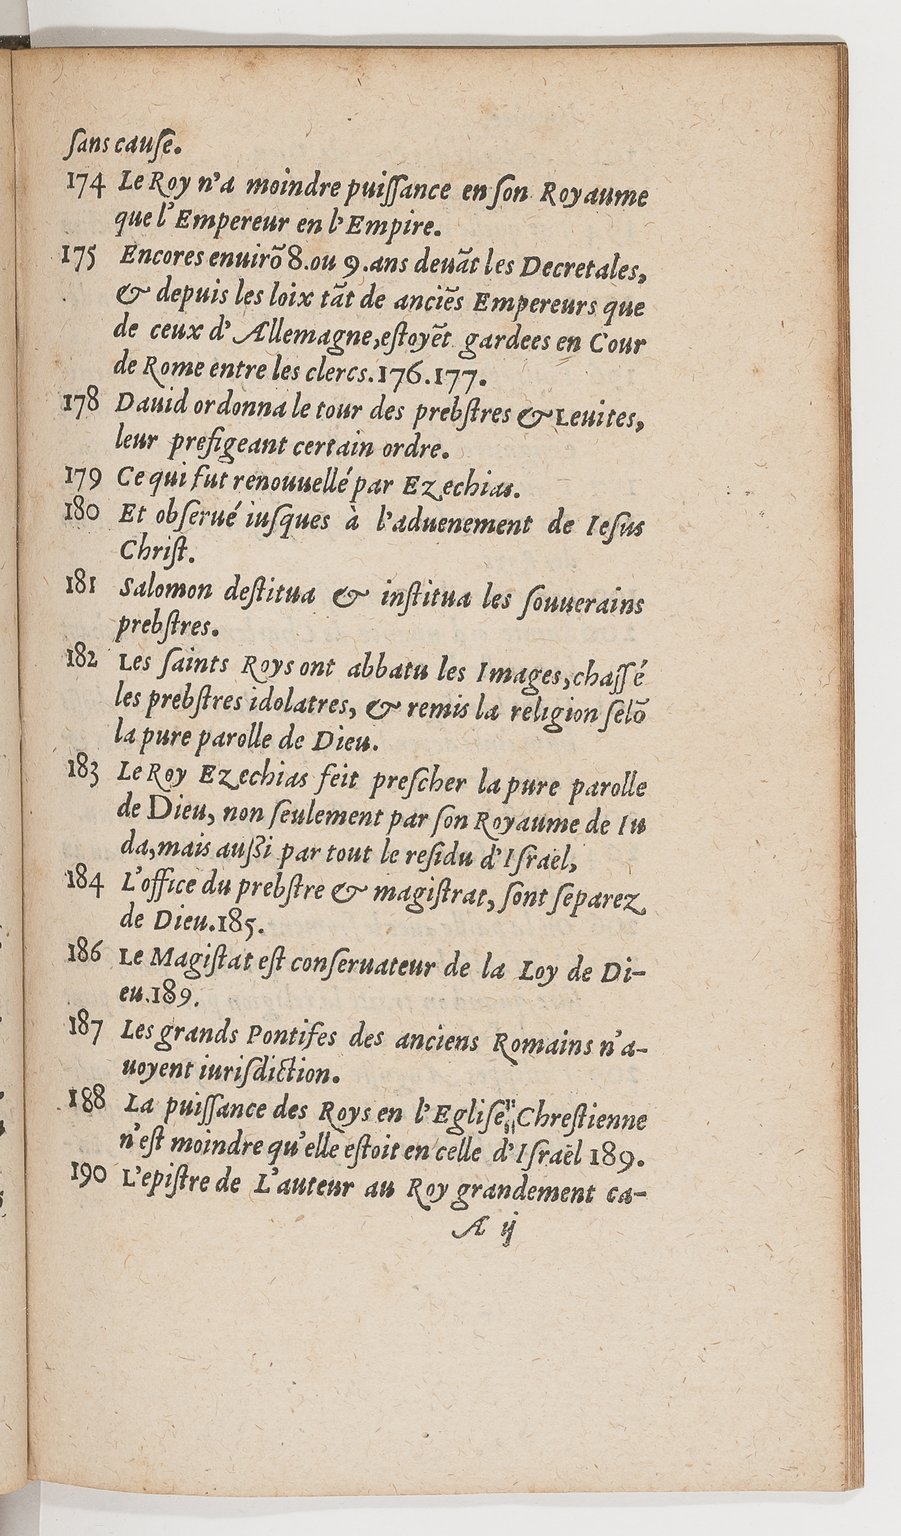 ſans cauſe.
174 Le Roy n'a moindre puiſſance en ſon Royaume
que l'Empereur en l'Empire.
175 Encores enuirō 8.ou 9.ans deuāt les Decretales,
& depuis les loix tāt de anciēs Empereurs que
de ceux d'Allemagne,eſtoyēt gardees en Cour
de Rome entre les clercs.176.177.
178 Dauid ordonna le tour des prebſtres & Leuites,
leur prefigeant certain ordre.
179 Ce qui fut renouuellé par Ezechias.
180 Et obſerué iuſques à l'aduenement de Ieſus
Chriſt.
181 Salomon deſtitua & inſtitua les ſouuerains
prebſtres.
182 Les ſaints Roys ont abbatu les Images,chaſſé
les prebſtres idolatres, & remis la religion ſelō
la pure parolle de Dieu.
183 Le Roy Ezechias feit preſcher la pure parolle
de Dieu, non ſeulement par ſon Royaume de Iu
da,mais auſſi par tout le reſidu d'Iſraël,
184 L'office du prebſtre & magiſtrat, ſont ſeparez
de Dieu.185.
186 Le Magiſtat eſt conſeruateur de la Loy de Di-
eu.189.
187 Les grands Pontifes des anciens Romains n'a-
uoyent iuriſdiction.
188 La puiſſance des Roys en l'Egliſe Chreſtienne
n'eſt moindre qu'elle eſtoit en celle d'Iſraël 189.
190 L'epiſtre de L'auteur au Roy grandement ca-
A ij